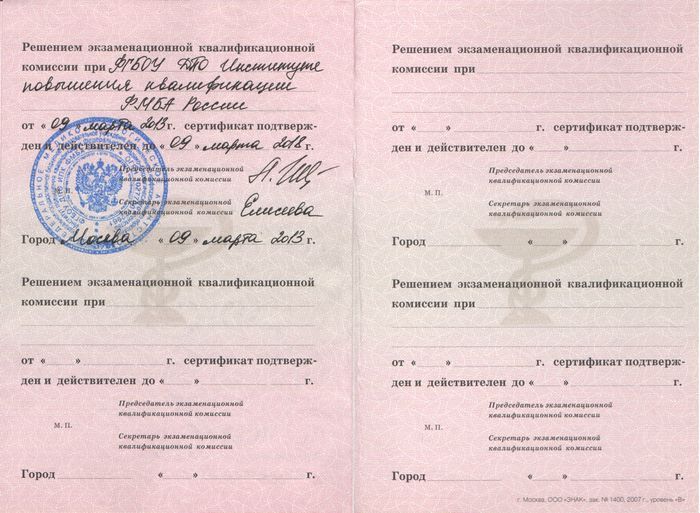 Решением экзаменационной квалификационной
комиссии при ФГБОУ ДПО Институте
повышения квалификации
ФМБА России
от « 09 » марта 2013 г. сертификат подтверж-
ден и действителен до « 09 » марта 2018 г.
Председатель экзаменационной
квалификационной комиссии
М. П.
Секретарь экзаменационной
квалификационной комиссии Елисеева
Город Москва « 09 » марта 2013 г.
Решением экзаменационной квалификационной
комиссии при
от « » г. сертификат подтверж-
ден и действителен до « » г.
Председатель экзаменационной
квалификационной комиссии
М. П.
Секретарь экзаменационной
квалификационной комиссии
Город « » г.
Решением экзаменационной квалификационной
комиссии при
от « » г. сертификат подтверж-
ден и действителен до « » г.
Председатель экзаменационной
квалификационной комиссии
М. П.
Секретарь экзаменационной
квалификационной комиссии
Город « » г.
Решением экзаменационной квалификационной
комиссии при
от « » г. сертификат подтверж-
ден и действителен до « » г.
Председатель экзаменационной
квалификационной комиссии
М. П.
Секретарь экзаменационной
квалификационной комиссии
Город « » г.
г. Москва, ООО «ЗНАК», зак. № 1400, 2007 г., уровень «В»